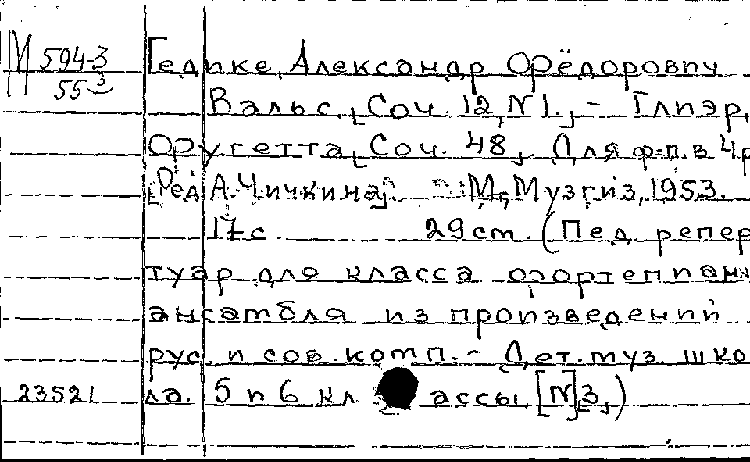 М 594-3 Гедике, Александр Фёдорович
55
Вальс. [Соч. 12, №1.] – Глиэр,
Фугетта [Соч. 48] Для ф.-п. в 4 р
[Ред. А. Чичкина]. М., Музгиз, 1953.
17 с 29 cm. (Пед. репер
туар для класса фортепианн
ансамбля из произведений
рус. и сов. комп. – Дет. муз. шко
23521 ла. 5 и 6 классы [№]3.)